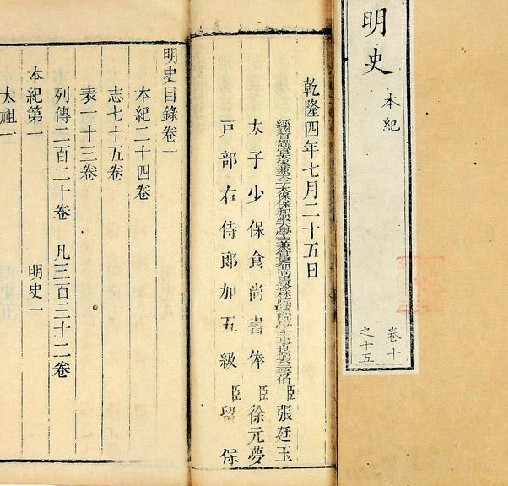 明史
本紀
卷十
之十五
乾隆四年七月二十五日
臣張廷玉
太子少保食尚書俸臣徐元夢
戶部右侍郎加五級臣留保
明史目錄卷一
本紀二十四卷
志七十五卷
表一十三卷
列傳二百二十卷 凡三百三十二卷
本紀第一 明史一
太祖一